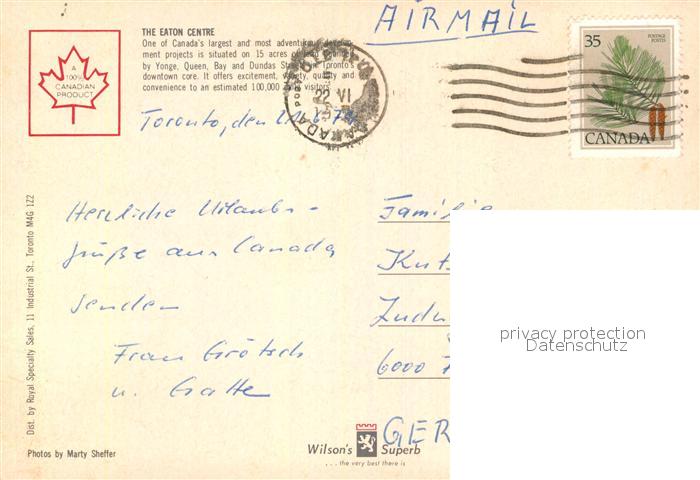 AIRMAIL
THE EATON CENTRE
One of Canada's largest and most adventurous
ment projects is situated on 15 acres of land
by Yonge, Queen, Bay and Dundas Toronto's
downtown core. It offers excitement, variety, quality and
convenience to an estimated 100,000 visitors.
A
100%
CANADIAN
PRODUCT
35
POSTAGE
POSTES
CANADA
22 VI
Toronto, den
Herzliche Urlaubs-
grüße aus Canada
senden
Frau Grötsch
u. Gatte
Familie
6000
GER
privacy protection
Datenschutz
Dist. by Royal Specialty Sales, 11 Industrial St., Toronto M4G 1Z2
Photos by Marty Sheffer
Wilson's Superb
... the very best there is